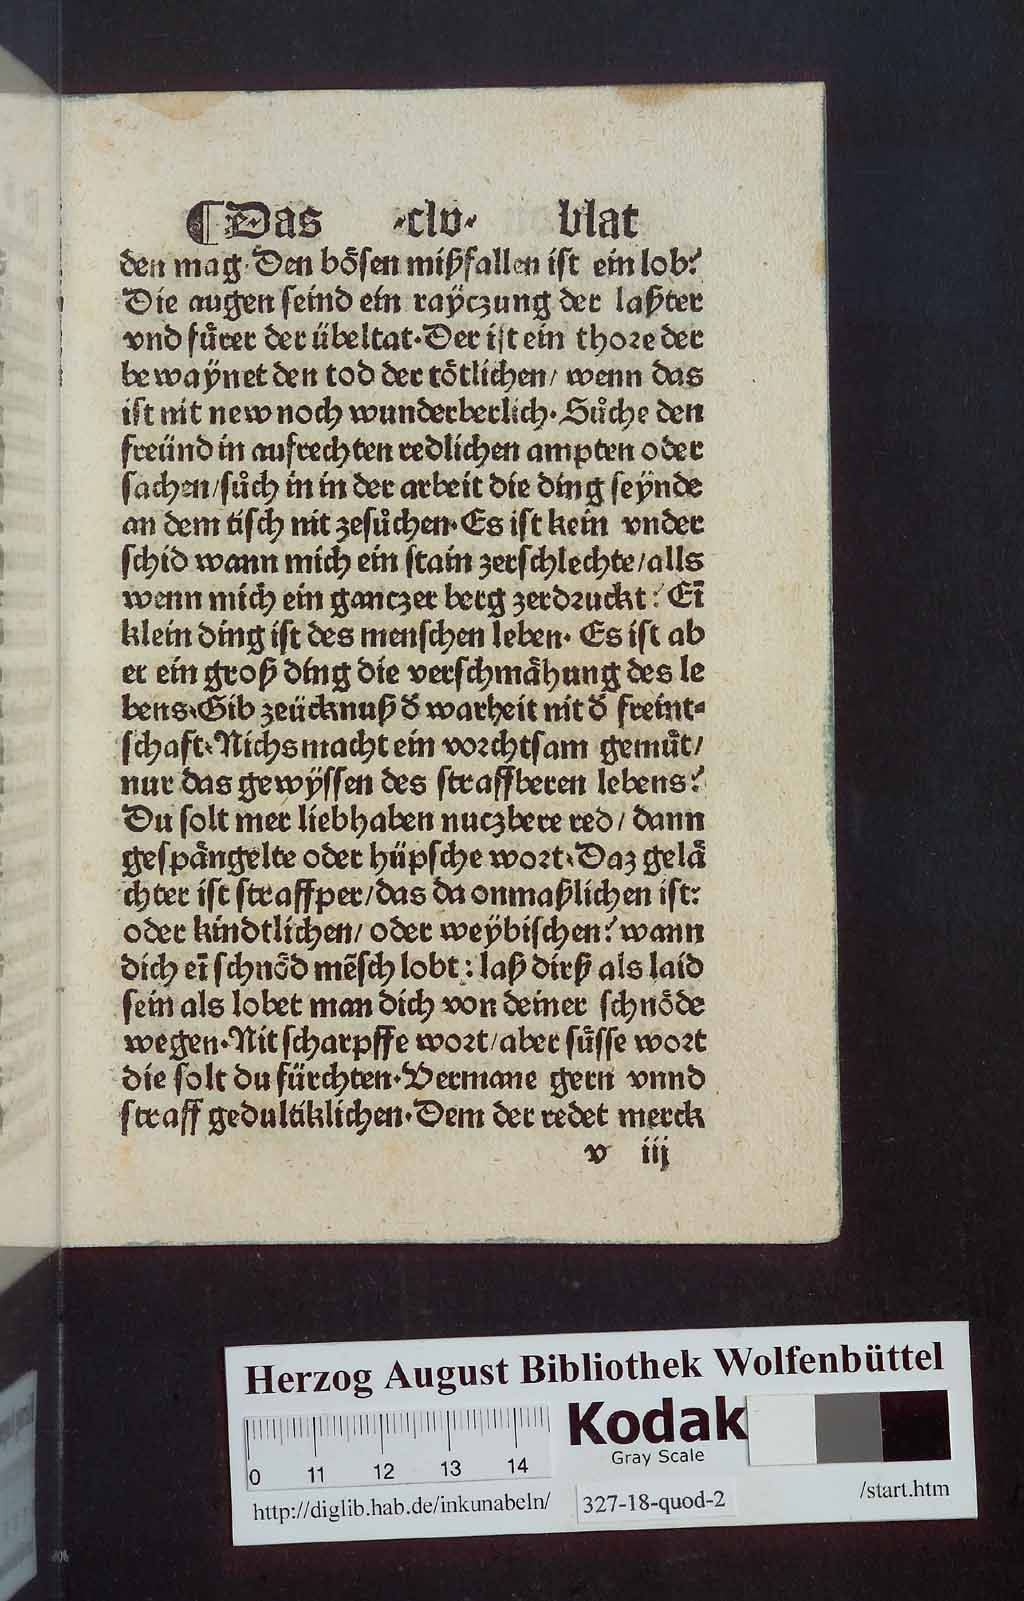 ¶Das ·clv· blat
den mag· Den bo᷄sen mißfallen ist ein lob?
Die augen seind ein raÿczung der laßter
vnd fu᷄rer der übeltat· Der ist ein thore der
bewaÿnet den tod der to᷄tlichen/ wenn das
ist nit new noch wunderberlich· Sůche den
freünd in aufrechten redlichen ampten oder
sachen/sůch in in der arbeit die ding seÿnde
an dem tisch nit zesůchen· Es ist kein vnder
schid wann mich ein stain zerschlechte/alls
wenn mich ein ganczer berg zerdruckt? Ei᷄
klein ding ist des menschen leben· Es ist ab
er ein groß ding die verschmähung des le
bens· Gib zeücknuß d᷄ warheit nit d᷄ freint⸗
schaft· Nichs macht ein vorchtsam gemüt/
nur das gewÿssen des straffberen lebens?
Du solt mer liebhaben nuczbere red/ dann
gespängelte oder hüpsche wort· Daz gelä
chter ist straffper/das da onmaßlichen ist:
oder kindtlichen/ oder weÿbischen? wann
dich ei᷄ schnöd me᷄sch lobt: laß dirß als laid
sein als lobet man dich von deiner schnöde
wegen· Nit scharpffe wort/aber süsse wort
die solt du fürchten· Vermane gern vnnd
straff gedultiklichen· Dem der redet merck
v iij
Herzog August Bibliothek Wolfenbüttel
Kodak
Gray Scale
0 11 12 13 14
http://diglib.hab.de/inkunabeln/ 327-18-quod-2 /start.htm